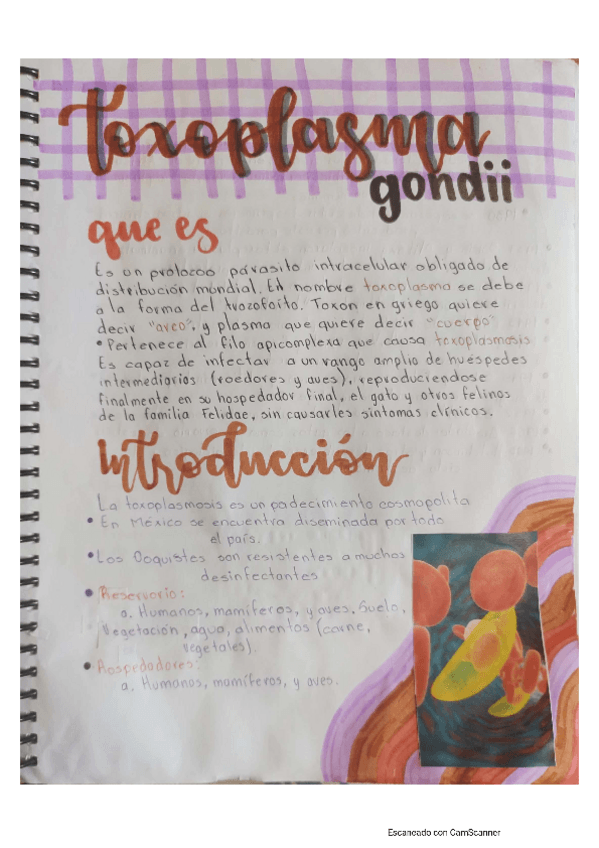 toxoplasma
gondii
que es
Es un protozoo párasito intracelular obligado de
distribución mundial. El nombre toxoplasma se debe
a la forma del trozofoíto. Toxon en griego quiere
decir "arco", y plasma que quiere decir "cuerpo"
• Pertenece al filo apicomplexa que causa toxoplasmosis
Es capaz de infectar a un rango amplio de huéspedes
intermediarios (roedores y aves), reproduciendose
finalmente en su hospedador final, el gato y otros felinos
de la familia Felidae, sin causarles sintomas clínicos.
Introducción
La toxoplasmosis es un padecimiento cosmopolita
• En México se encuentra diseminada por todo
el país.
• Los Ooquistes son resistentes a muchos
desinfectantes
• Reservorio:
a. Humanos, mamíferos, y aves. Suelo,
Vegetación, agua, alimentos (carne,
vegetales).
• Hospedadores:
a. Humanos, mamíferos, y aves.
Escaneado con CamScanner